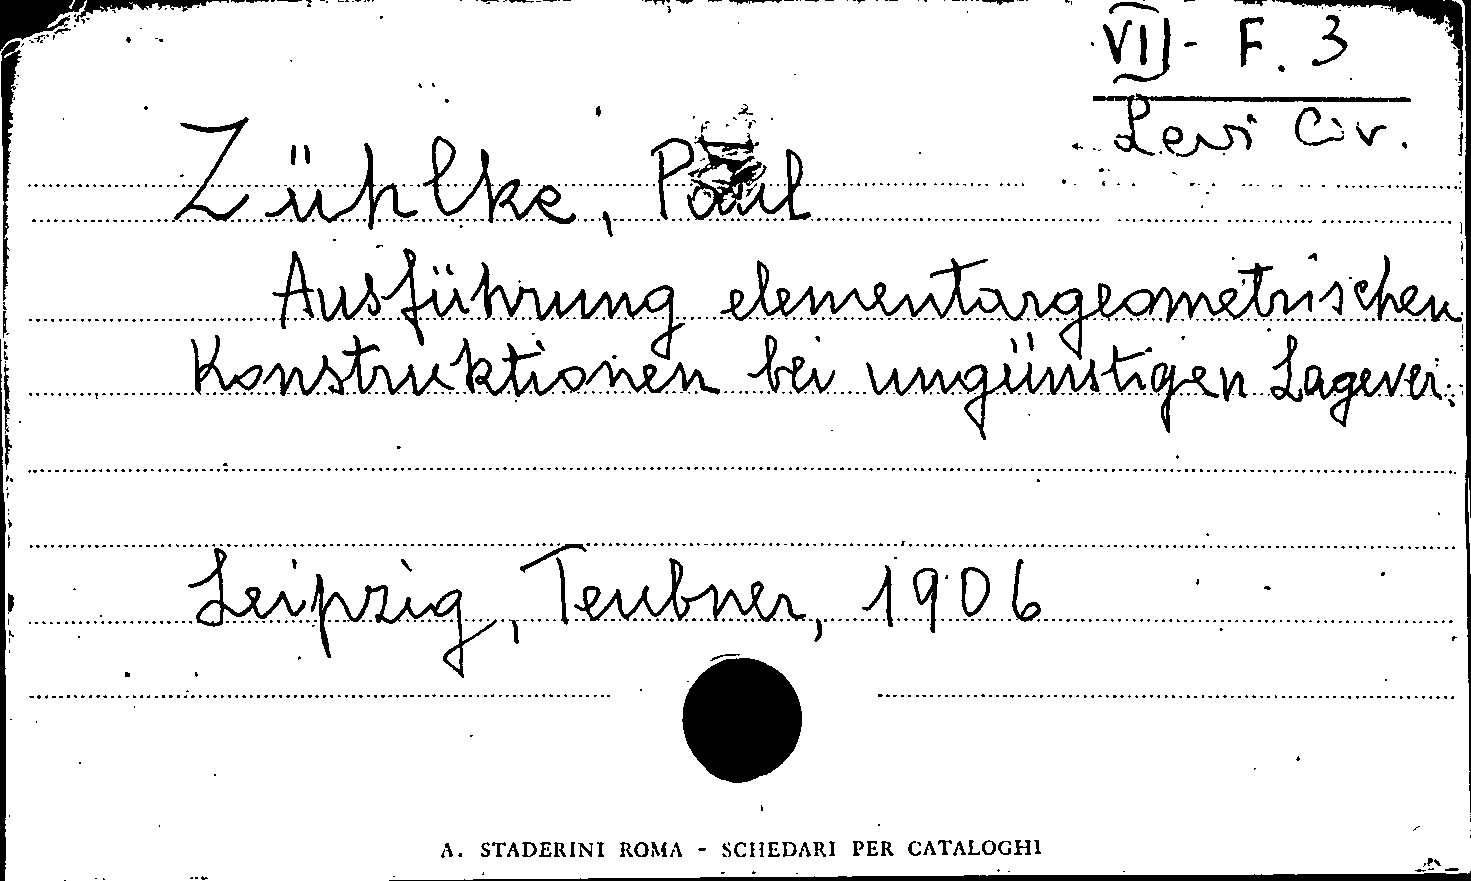 VII - F. 3
Levi Civ.
Zühlke, Paul
Ausführung elementargeometrischen
Konstruktionen bei ungünstigen Lagever.
Leipzig, Teubner, 1906
A. STADERINI ROMA - SCHEDARI PER CATALOGHI